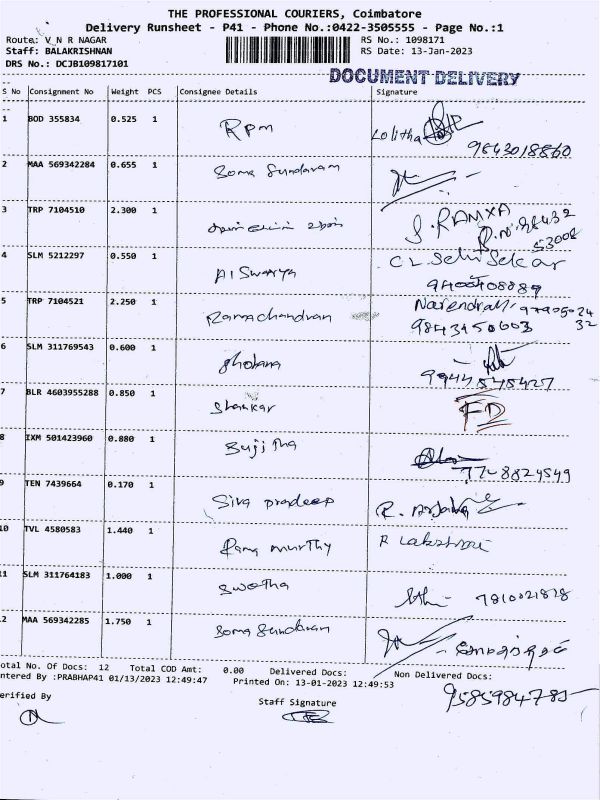 THE PROFESSIONAL COURIERS, Coimbatore
Delivery Runsheet - P41 - Phone No.:0422-3505555 - Page No.:1
Route: V N R NAGAR RS No.: 1098171
Staff: BALAKRISHNAN RS Date: 13-Jan-2023
DRS No.: DCJB109817101
DOCUMENT DELIVERY
S No Consignment No Weight PCS Consignee Details Signature
1 BOD 355834 0.525 1 Rpm Lolitha
9843018860
2 MAA 569342284 0.655 1 Soma Sundaram
3 TRP 7104510 2.300 1 J. RAMYA
53008
4 SLM 5212297 0.550 1 AISwarya C L. Selvi Sekar
5 TRP 7104521 2.250 1 Ramachandran Narendran
32
6 SLM 311769543 0.600 1
7 BLR 4603955288 0.850 1 Shankar FD
8 IXM 501423960 0.880 1 Sujitha
7708824549
9 TEN 7439664 0.170 1 Siva pradeep R.
10 TVL 4580583 1.440 1 Rama murthy R Lakshmi
11 SLM 311764183 1.000 1 Swetha 7810021828
2 MAA 569342285 1.750 1 Soma Sundaram
otal No. Of Docs: 12 Total COD Amt: 0.00 Delivered Docs: Non Delivered Docs:
ntered By :PRABHAP41 01/13/2023 12:49:47 Printed On: 13-01-2023 12:49:53
9585984785
erified By Staff Signature